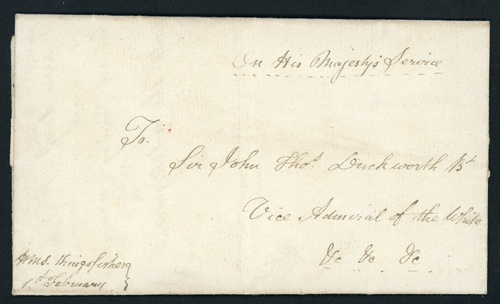 On His Majesty's Service
To.
Sir John Thos. Duckworth Bt
Vice Admiral of the White
&c &c &c
HMS. Kingsfisher
February